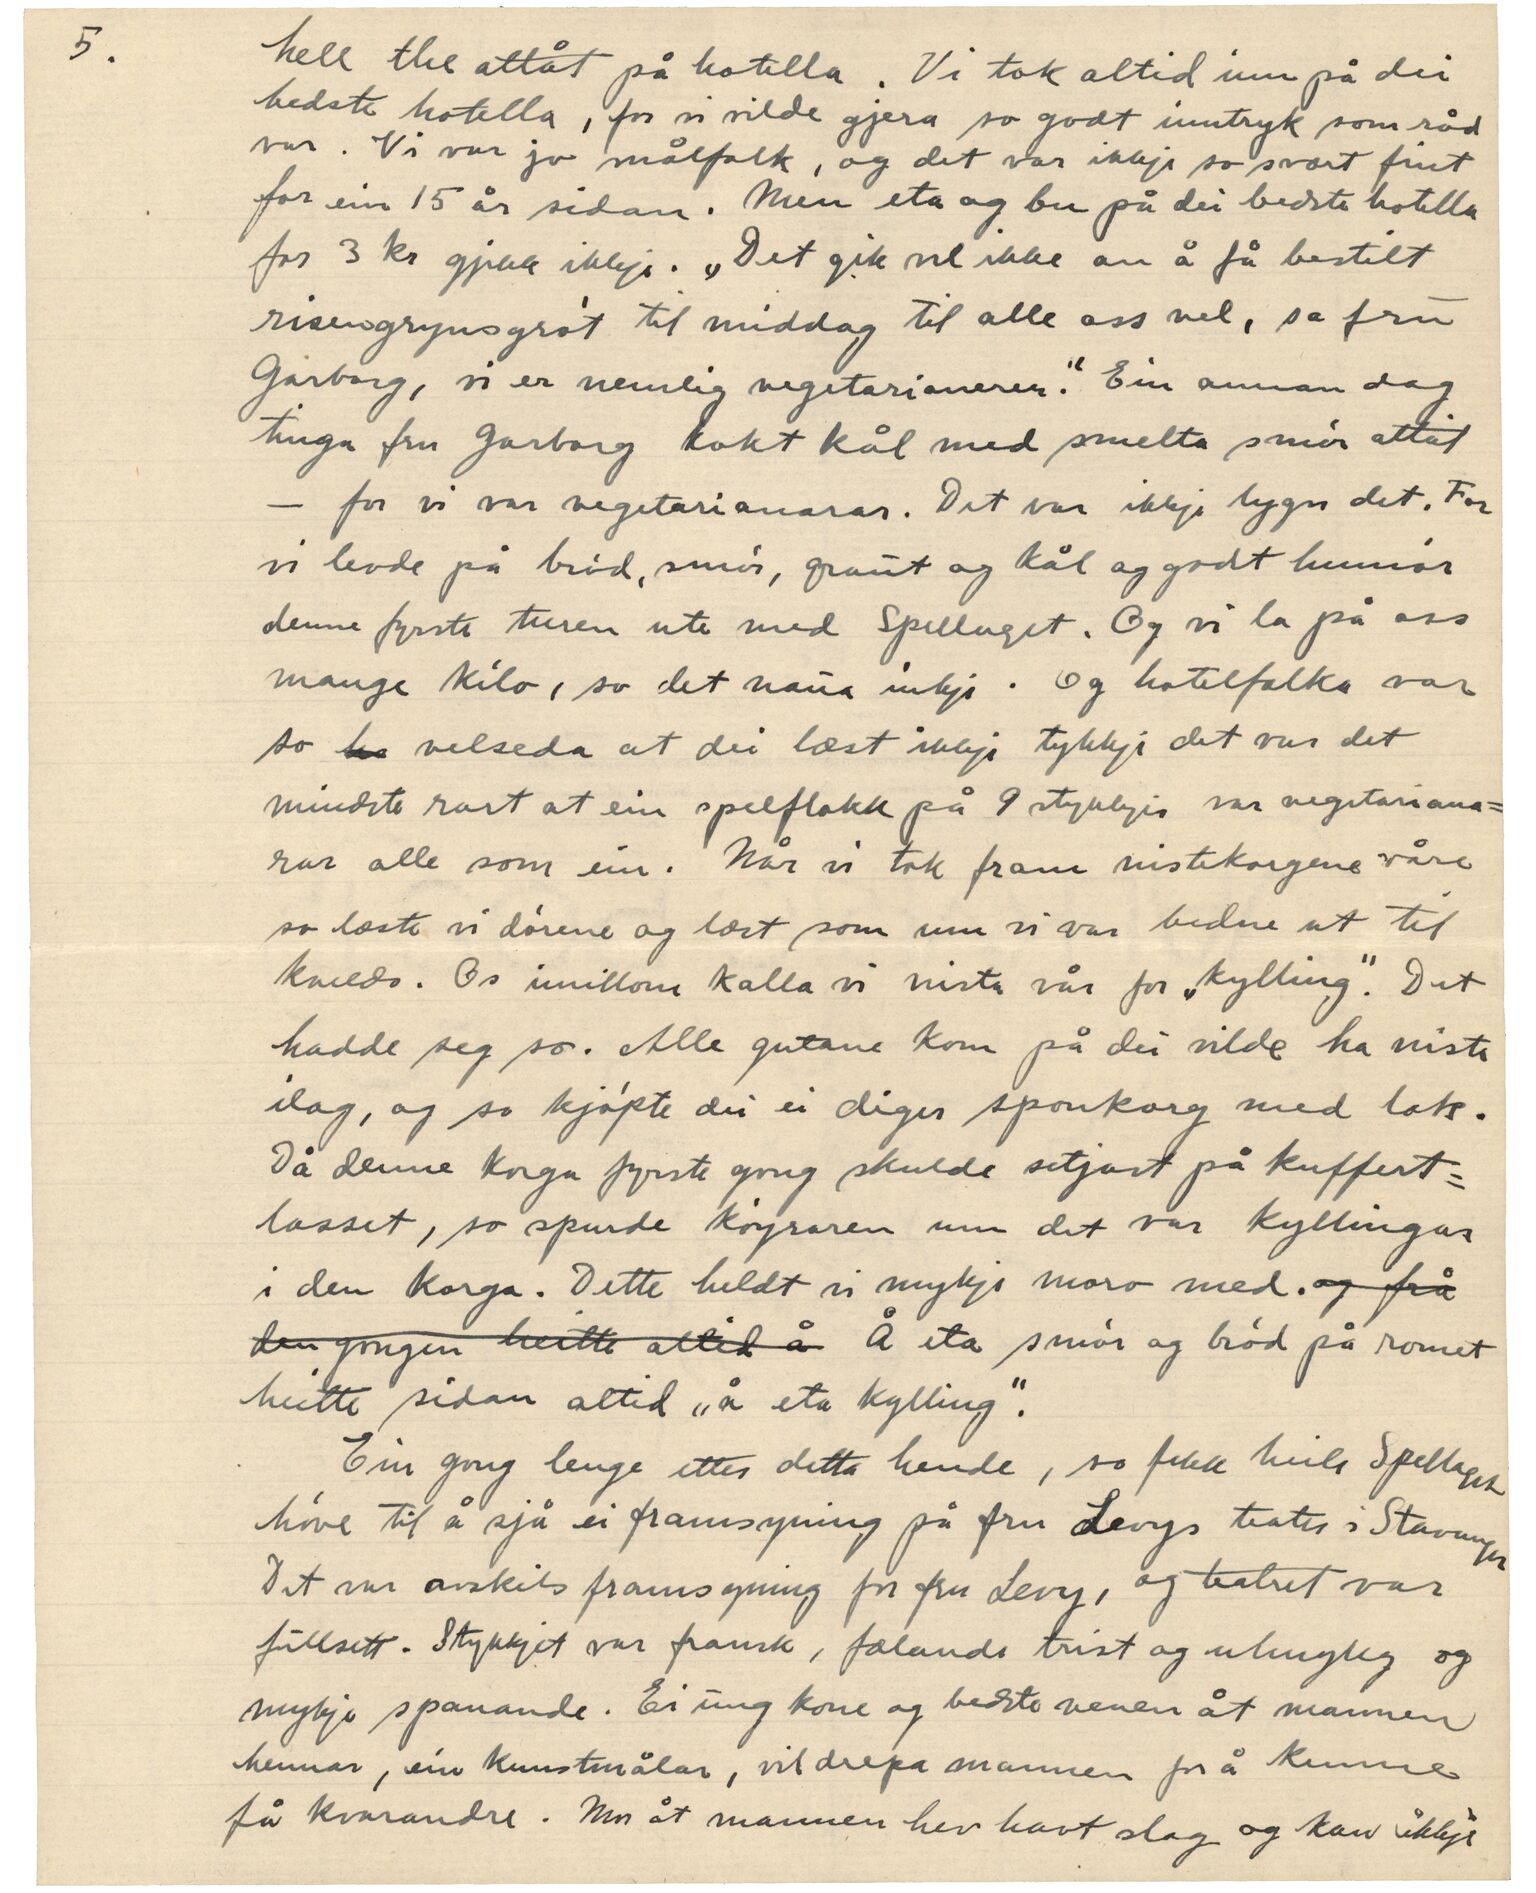 5.
hell the attåt på hotella. Vi tok altid inn på dei
bedste hotella, for vi vilde gjera so godt inntryk som råd
var. Vi var jo målfolk, og det var ikkje so svært fint
for ein 15 år sidan. Men eta og bu på dei bedste hotella
for 3 kr gjekk ikkje. „Det gik vel ikke an å få bestilt
risengrynsgrøt til middag til alle oss vel, sa fru
Garborg, vi er nemlig vegetarianerer." Ein annan dag
tinga fru Garborg kokt kål med smelta smör attåt
— for vi var vegetarianarar. Det var ikkje lygn det. For
vi levde på bröd, smör, graut og kål og godt humör
denne fyrste turen ute med Spellaget. Og vi la på oss
mange kilo, so det naua inkje. Og hotelfolka var
so velseda at dei læst ikkje tykkje det var det
mindste rart at ein spelflokk på 9 stykkjer var vegetariana=
rar alle som ein. Når vi tok fram nistekorgene våre
so læste vi dörene og læst som um vi var bedne ut til
kvelds. Os imillom kalla vi nista vår for „kylling". Det
hadde seg so. Alle gutane kom på dei vilde ha niste
ilag, og so kjöpte dei ei diger sponkorg med lok.
Då denne korga fyrste gong skulde setjast på kuffert=
lasset, so spurde köyraren um det var kyllingar
i den korga. Dette heldt vi mykje moro med. og frå
den gongen heitte altid å Å eta smör og bröd på romet
heitte sidan altid „å eta kylling".
Ein gong lenge etter detta hende, so fekk heile Spellaget
höve til å sjå ei framsyning på fru Levys teater i Stavanger
Det var avskilsframsyning for fru Levy, og teatret var
fullsett. Stykkjet var fransk, fælande trist og uhugleg og
mykje spanande. Ei ung kone og bedste venen åt mannen
hennar, ein kunstmålar, vil drepa mannen for å kunne
få kvarandre. Mor åt mannen hev havt slag og kan ikkje